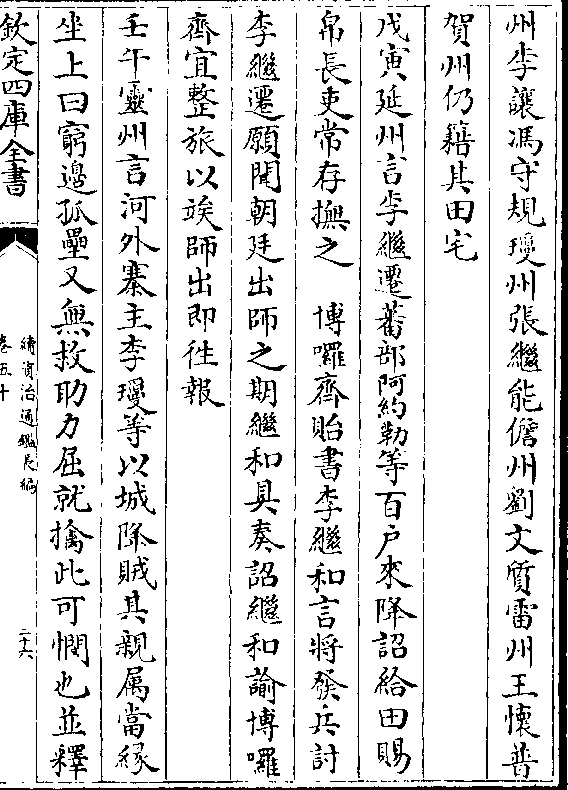 州李讓馮守規瓊州張繼能儋州劉文質雷州王懷普
賀州仍籍其田宅
戊寅延州言李繼遷蕃部阿約勒等百戶來降詔給田賜
帛長吏常存撫之　博囉齊貽書李繼和言將發兵討
李繼遷願聞朝廷出師之期繼和具奏詔繼和諭博囉
齊宜整旅以竢師出即徃報
壬午靈州言河外寨主李瓊等以城降賊其親屬當緣
坐上曰窮邊孤壘又無救助力屈就擒此可憫也並釋
欽定四庫全書
續資治通鑑長編
卷五十
二十六